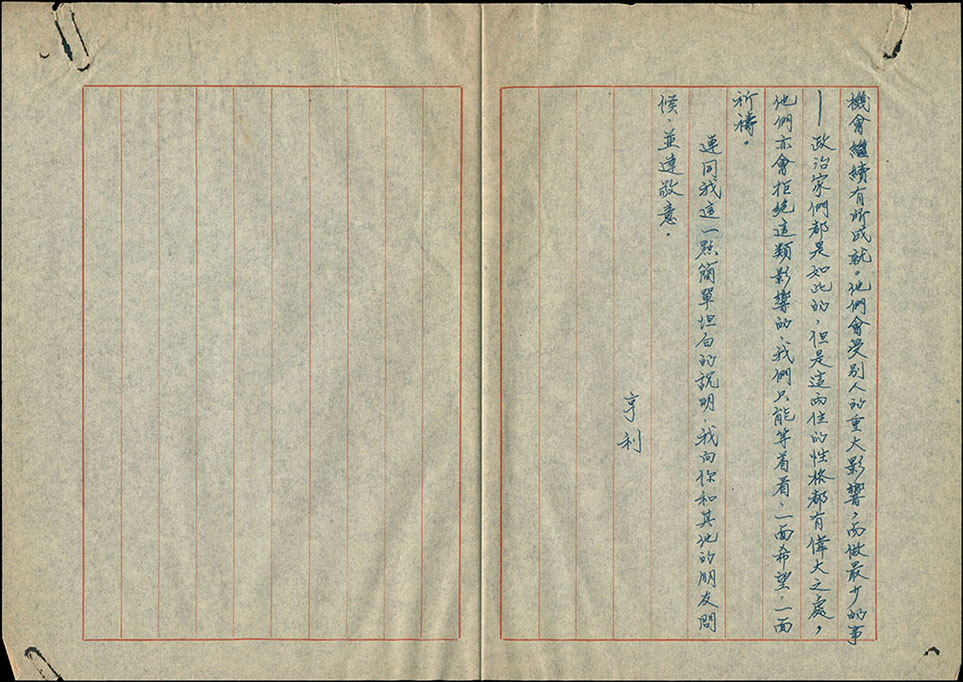 機會繼續有所成就。他們會受別人的重大影響，而做最少的事
—政治家們都是如此的，但是這兩位的性格都有偉大之處，
他們亦會拒絕這類影響的，我們只能等着看，一面希望，一面
祈禱。
連同我這一點簡單坦白的說明，我向你和其他的朋友問
候，並達敬意。
亨利